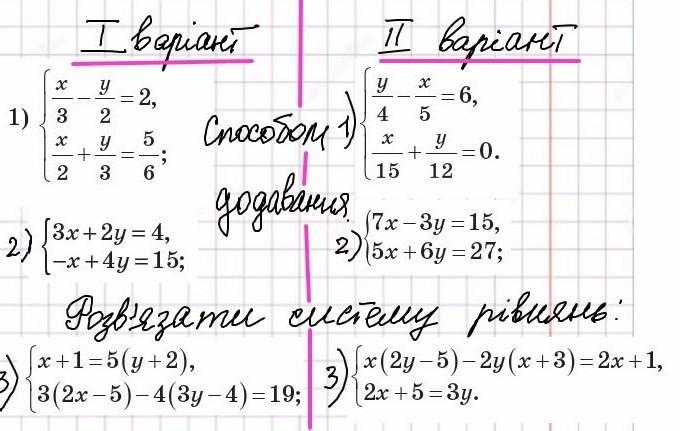 I варіант
II варіант
1) { x/3 − y/2 = 2,
x/2 + y/3 = 5/6;
Способом
додавання.
1) { y/4 − x/5 = 6,
x/15 + y/12 = 0.
2) { 3x + 2y = 4,
−x + 4y = 15;
2) { 7x − 3y = 15,
5x + 6y = 27;
Розв'язати систему рівнянь:
3) { x + 1 = 5(y + 2),
3(2x − 5) − 4(3y − 4) = 19;
3) { x(2y − 5) − 2y(x + 3) = 2x + 1,
2x + 5 = 3y.